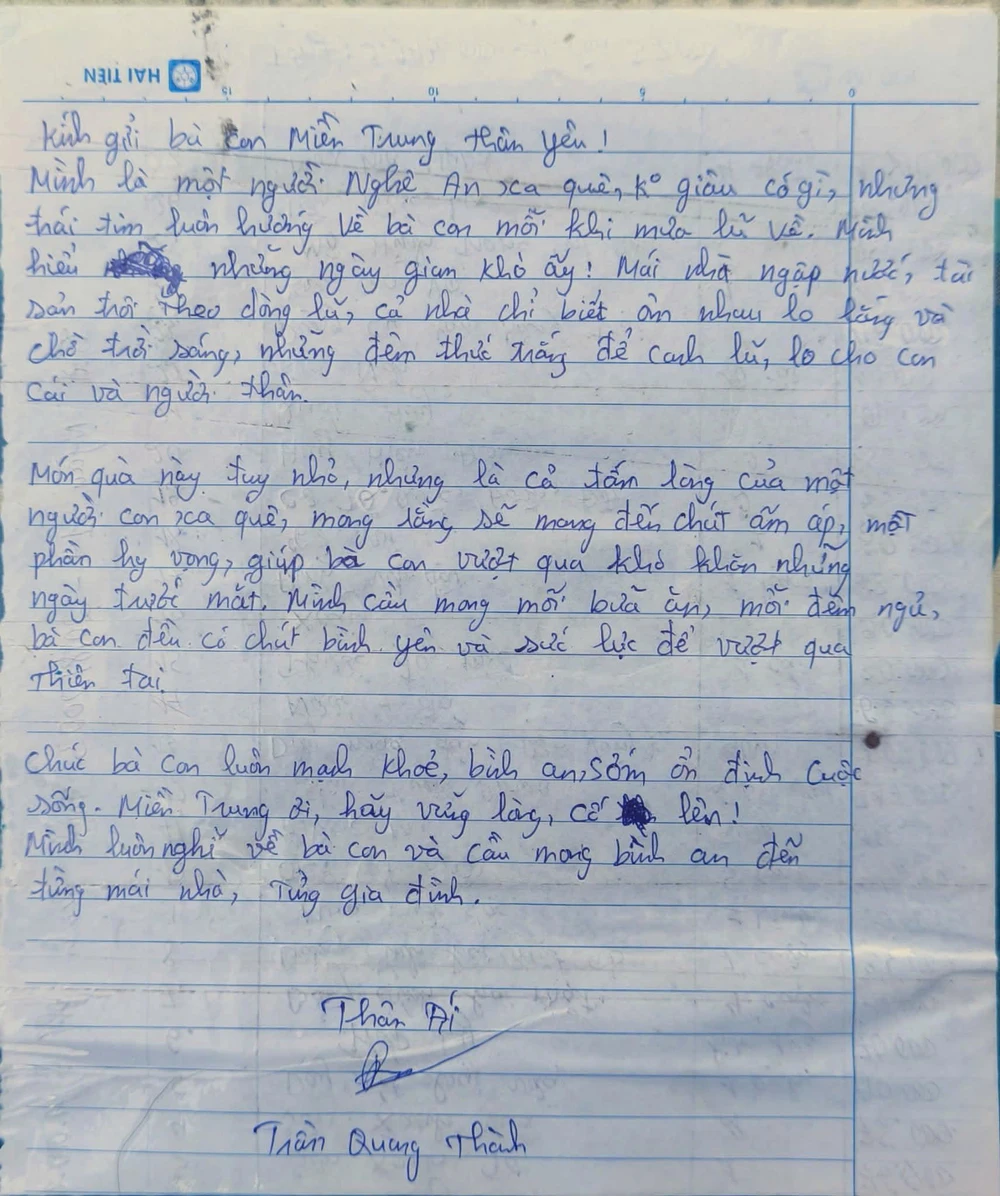 HẢI TIẾN
15 10 5 0
Kính gửi bà con Miền Trung thân yêu!
Mình là một người Nghệ An xa quê, k° giàu có gì, nhưng
trái tim luôn hướng về bà con mỗi khi mưa lũ về. Mình
hiểu những ngày gian khó ấy! Mái nhà ngập nước, tài
sản trôi theo dòng lũ, cả nhà chỉ biết ôm nhau lo lắng và
chờ trời sáng, những đêm thức trắng để canh lũ, lo cho con
cái và người thân.
Món quà này tuy nhỏ, nhưng là cả tấm lòng của một
người con xa quê, mong rằng sẽ mang đến chút ấm áp, một
phần hy vọng, giúp bà con vượt qua khó khăn những
ngày trước mắt. Mình cầu mong mỗi bữa ăn, mỗi đêm ngủ,
bà con đều có chút bình yên và sức lực để vượt qua
thiên tai.
Chúc bà con luôn mạnh khoẻ, bình an, sớm ổn định cuộc
sống. Miền Trung ơi, hãy vững lòng, cố lên!
Mình luôn nghĩ về bà con và cầu mong bình an đến
từng mái nhà, từng gia đình.
Thân Ái
Trần Quang Thành